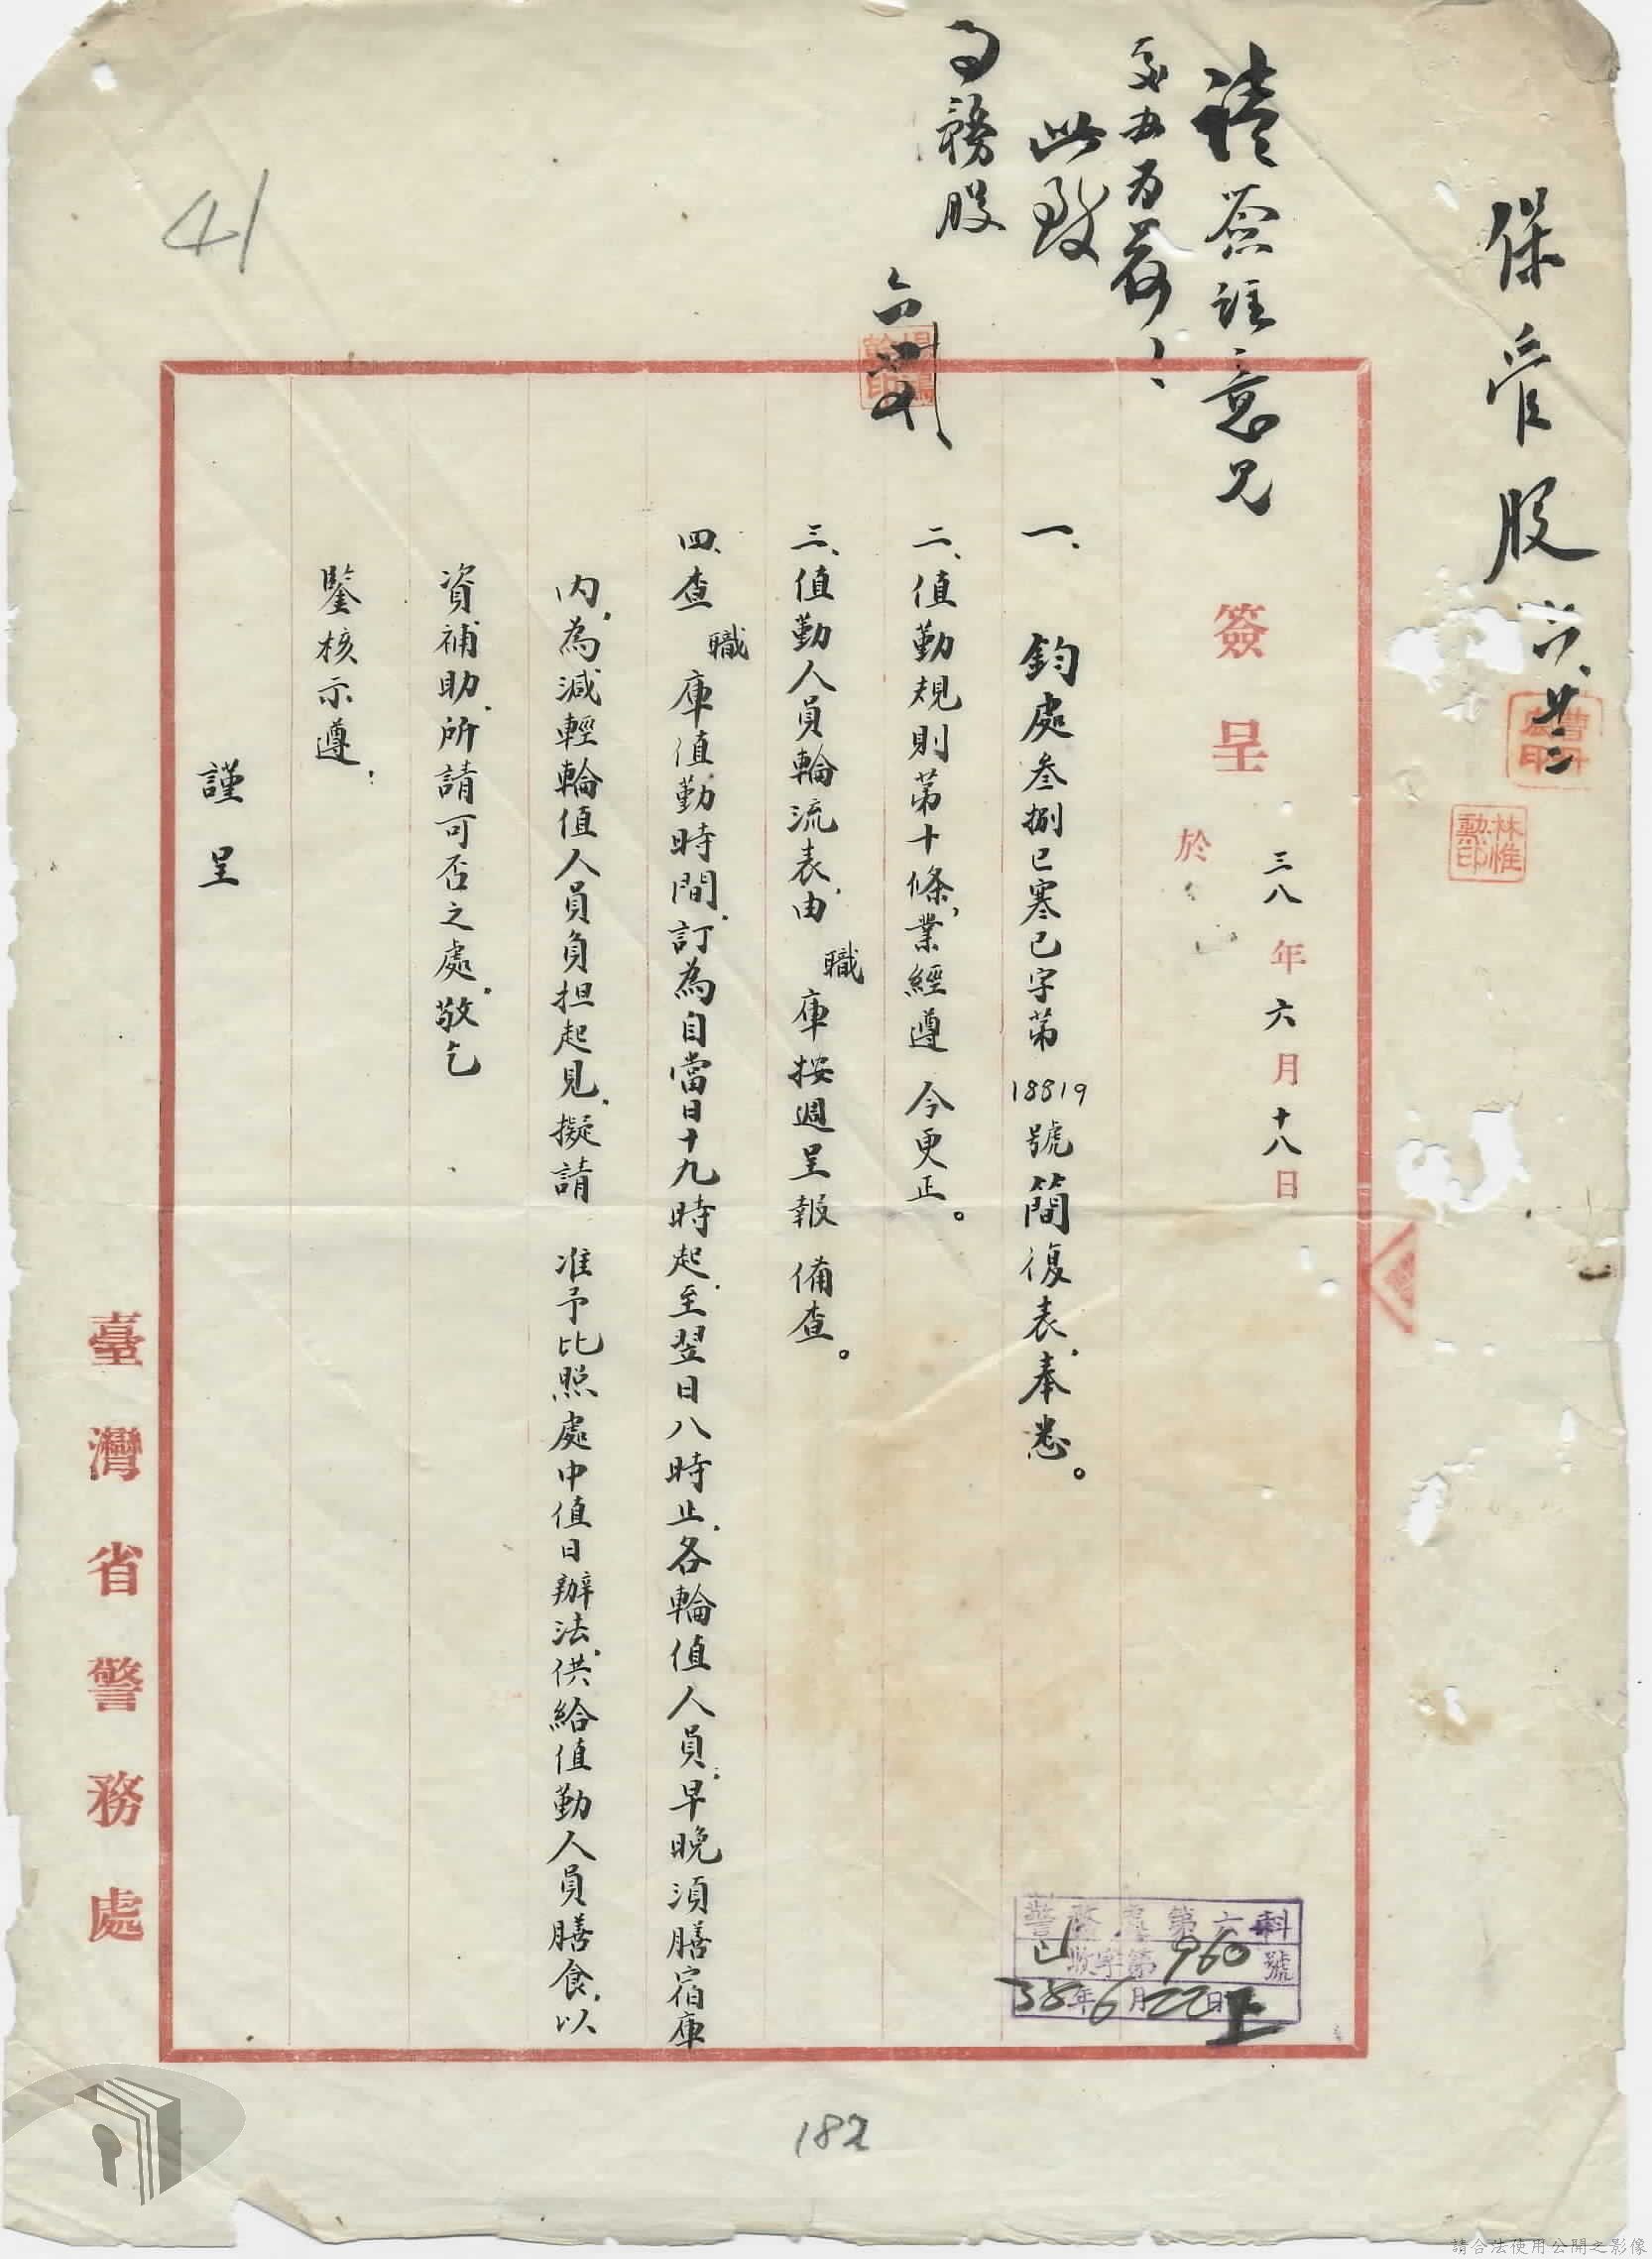 保管股 六、廿二
林惟勳印
請簽註意見
交办為荷！
此致
事務股
簽呈 於
三八年六月十八日
一、鈞處叁捌巳寒巳字第18819號簡復表，奉悉。
二、值勤規則第十條，業經遵 令更正。
三、值勤人員輪流表，由職庫按週呈報 備查。
四、查職庫值勤時間，訂為自當日十九時起，至翌日八時止，各輪值人員，早晚須膳宿庫
內，為減輕輪值人員負担起見，擬請 准予比照處中值日辦法，供給值勤人員膳食，以
資補助，所請可否之處，敬乞
鑒核示遵！
謹呈
臺灣省警務處
警務處第六科
巳收字第960號
38年6月22日上
41
182
請合法使用公開之影像